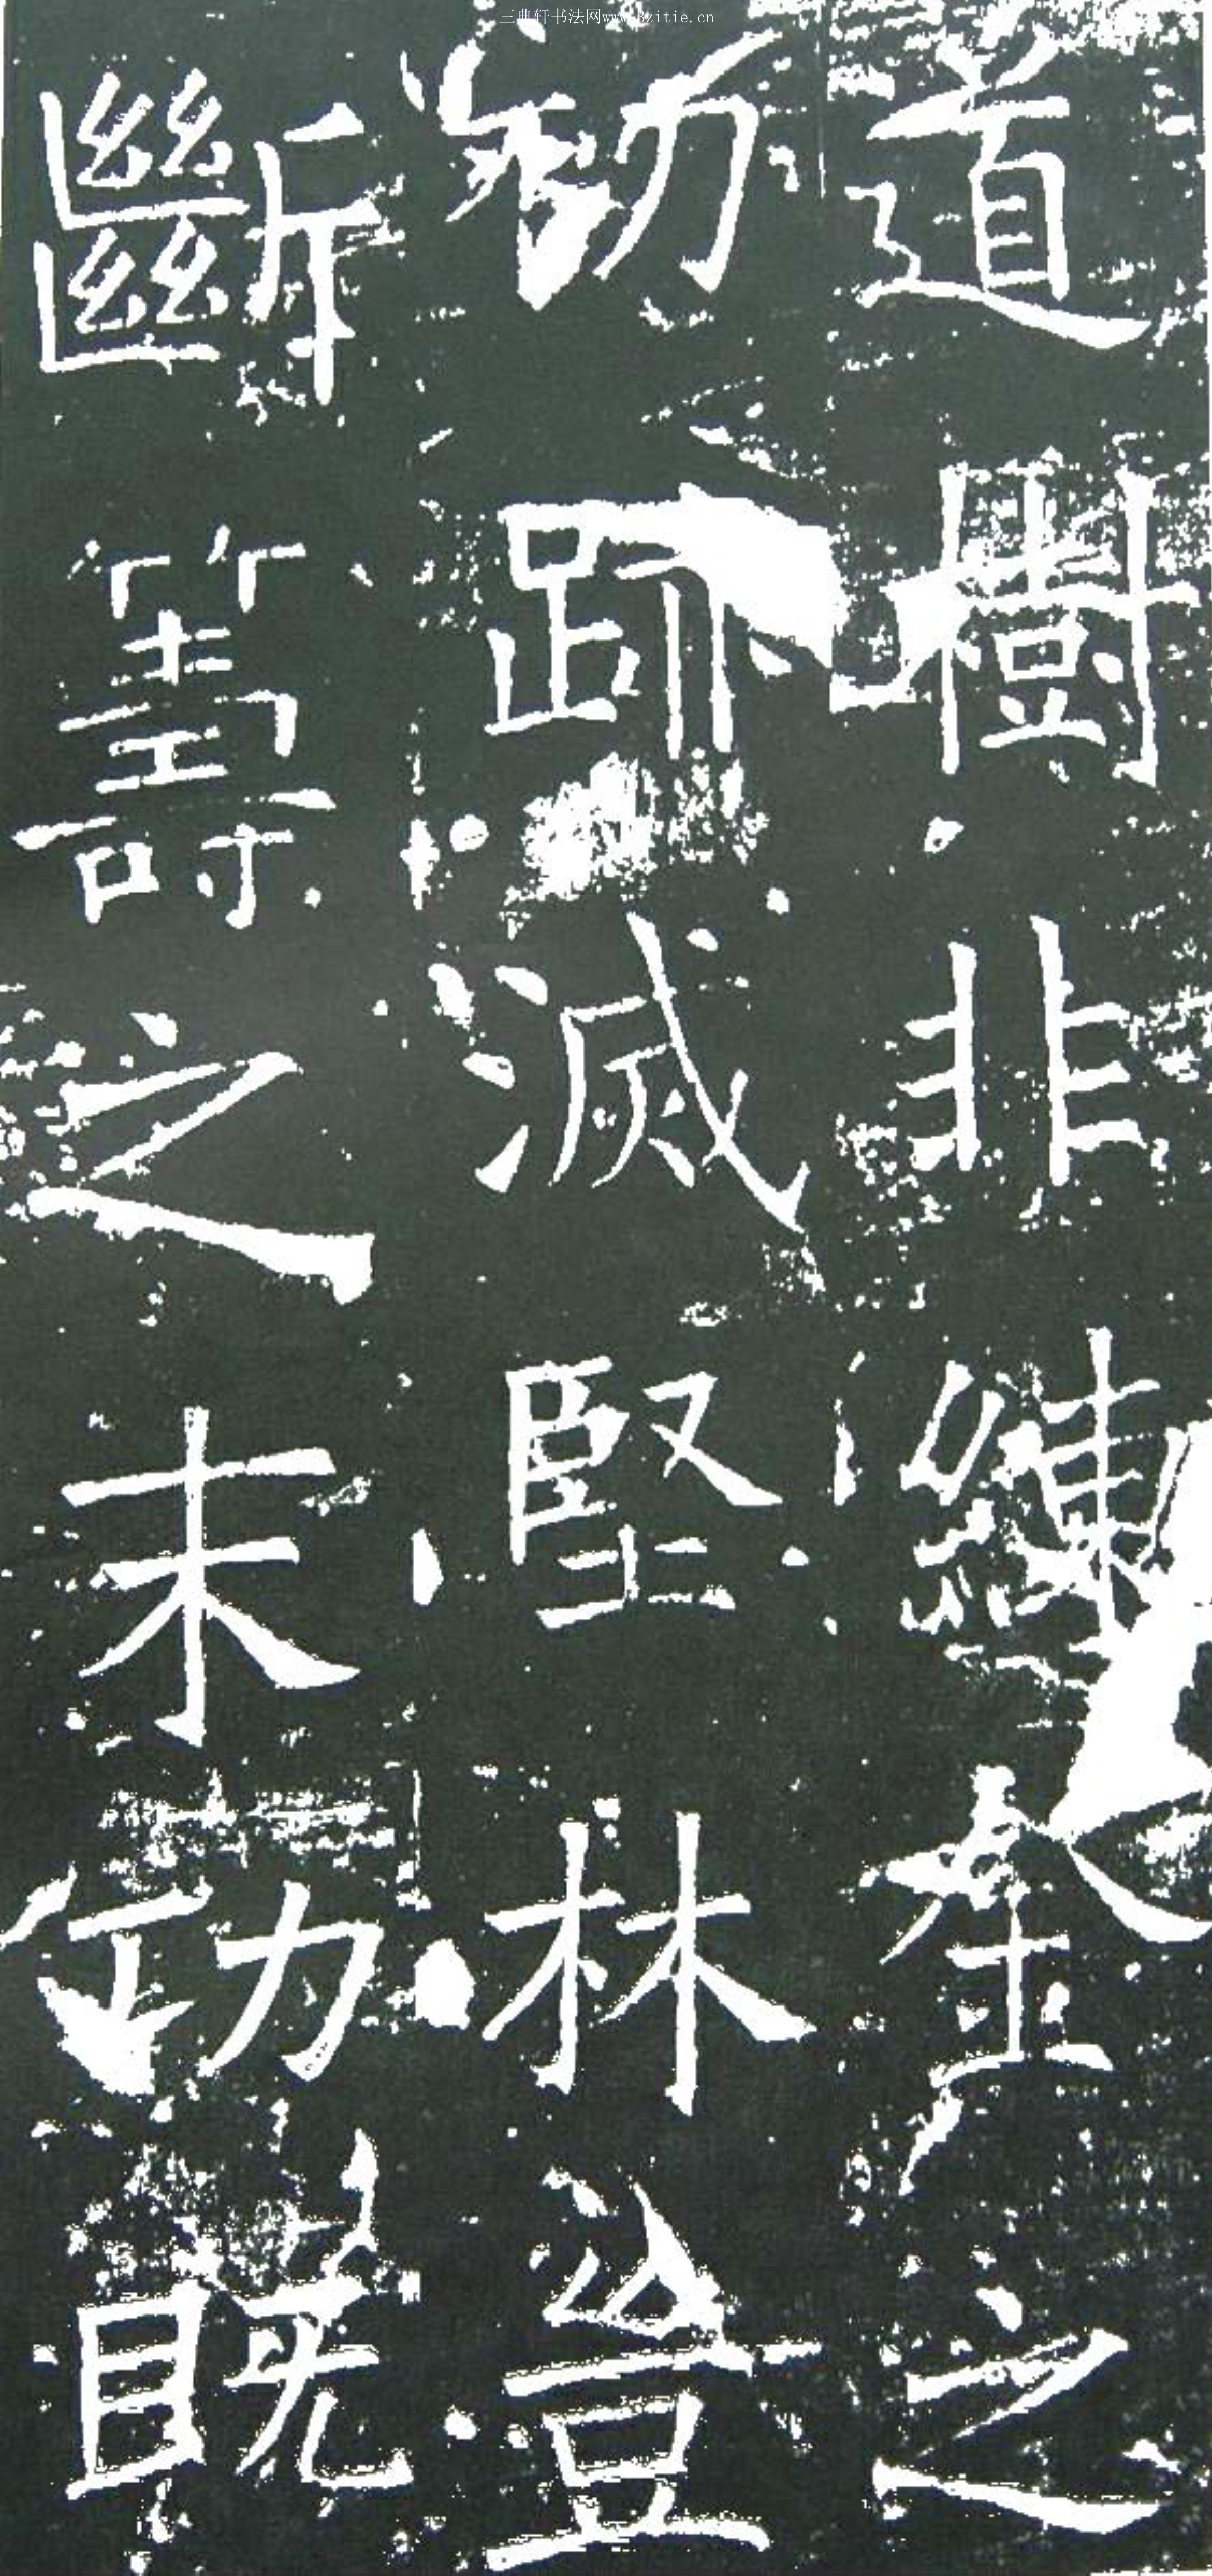 三典轩书法网www.3zitie.cn
道樹非練金之
劬跡滅堅林豈
斷籌之末功既